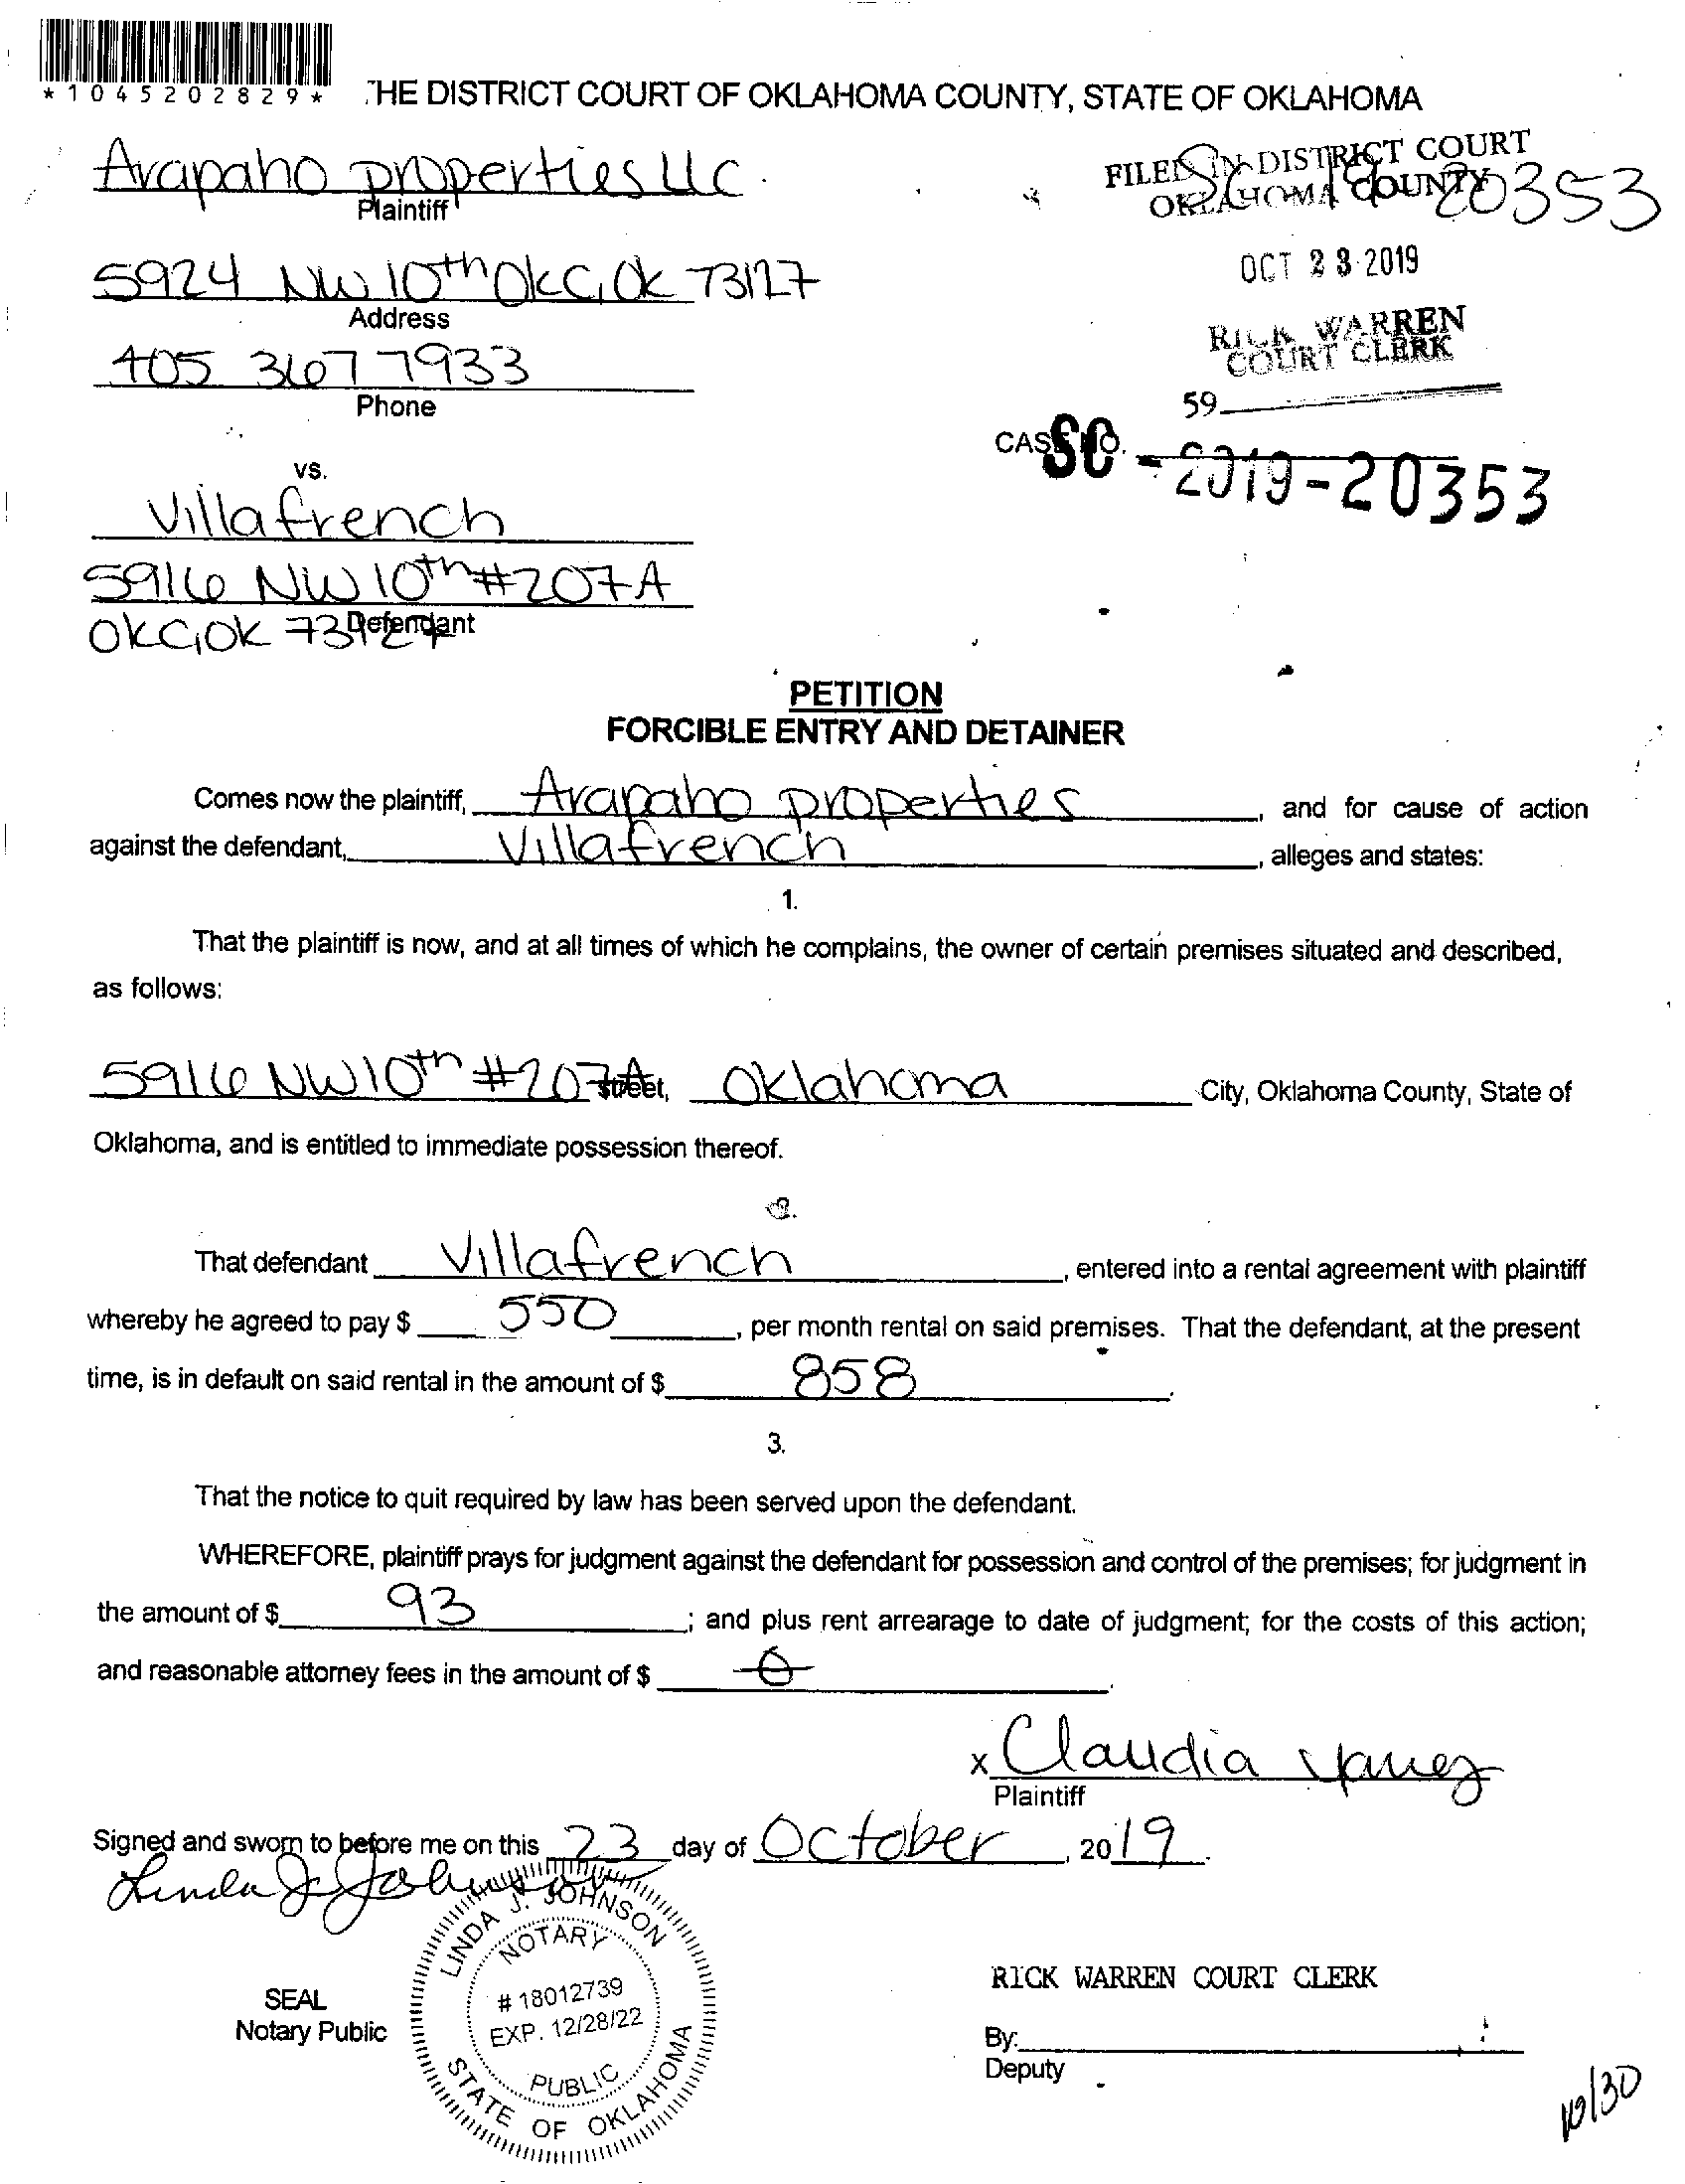 *1045202829*
THE DISTRICT COURT OF OKLAHOMA COUNTY, STATE OF OKLAHOMA
Arapaho properties LLC.
Plaintiff
FILED IN DISTRICT COURT
OKLAHOMA COUNTY
SC 19 20353
5924 NW 10th OKC, OK 73127
Address
OCT 23 2019
405 367 7933
Phone
RICK WARREN
COURT CLERK
59
CASE NO.
SC - 2019-20353
vs.
Villafrench
5916 NW 10th #207A
OKC, OK 73127
Defendant
PETITION
FORCIBLE ENTRY AND DETAINER
Comes now the plaintiff, Arapaho properties, and for cause of action
against the defendant, Villafrench, alleges and states:
1.
That the plaintiff is now, and at all times of which he complains, the owner of certain premises situated and described,
as follows:
5916 NW 10th #207A street, Oklahoma City, Oklahoma County, State of
Oklahoma, and is entitled to immediate possession thereof.
2.
That defendant Villafrench, entered into a rental agreement with plaintiff
whereby he agreed to pay $ 550, per month rental on said premises. That the defendant, at the present
time, is in default on said rental in the amount of $ 858.
3.
That the notice to quit required by law has been served upon the defendant.
WHEREFORE, plaintiff prays for judgment against the defendant for possession and control of the premises; for judgment in
the amount of $ 93; and plus rent arrearage to date of judgment; for the costs of this action;
and reasonable attorney fees in the amount of $ 0.
x Claudia Yanez
Plaintiff
Signed and sworn to before me on this 23 day of October, 2019.
Linda J Johnson
LINDA J. JOHNSON
NOTARY
# 18012739
EXP. 12/28/22
PUBLIC
STATE OF OKLAHOMA
SEAL
Notary Public
RICK WARREN COURT CLERK
By:
Deputy
10/30